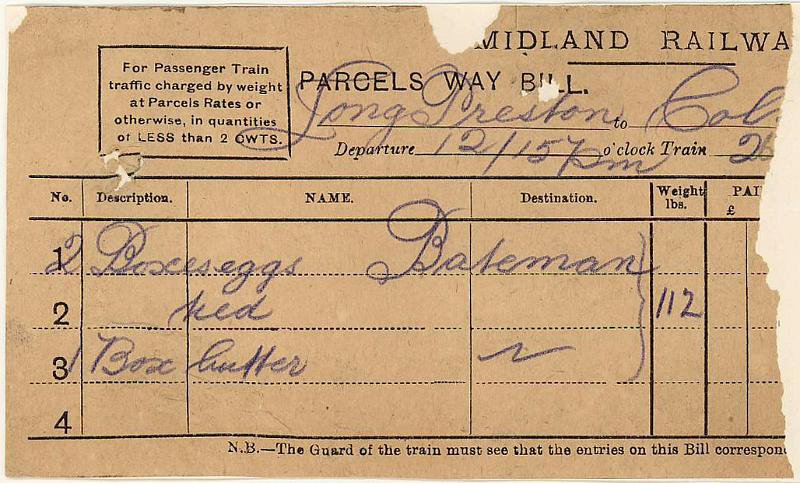 MIDLAND RAILWA
PARCELS WAY BILL.
For Passenger Train
traffic charged by weight
at Parcels Rates or
otherwise, in quantities
of LESS than 2 CWTS.
Long Preston to Col
Departure 12/157 pm o'clock Train 2
No. Description. NAME. Destination. Weight lbs. PAI £
1 2 Boxes eggs Bateman
2 ked 112
3 1 Box butter
4
N.B.—The Guard of the train must see that the entries on this Bill correspon